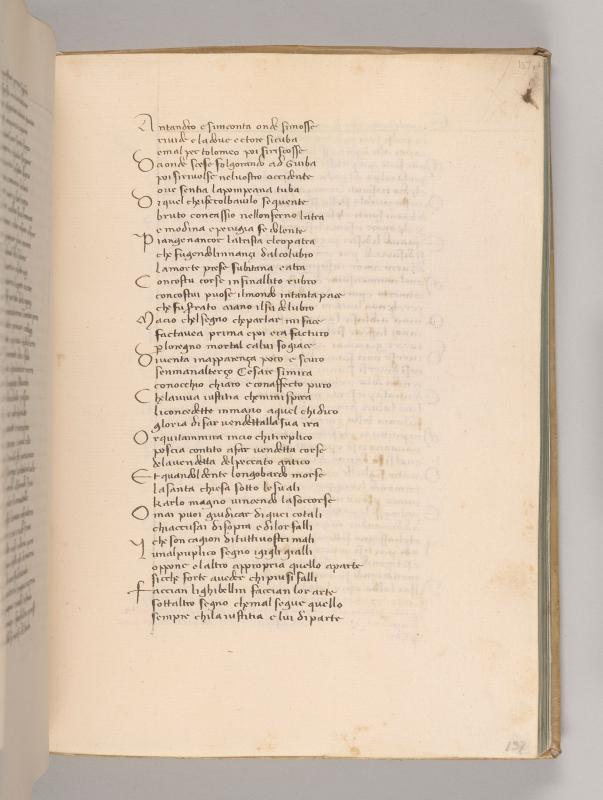 157
Antandro e simeonta onde simosse
rivide e ladove ectore sicuba
e mal per tolomeo poi siriscosse
Da onde scese folgorando ad Giuba
poi sirivolse nel vostro occidente
ove sentia la pompeana tuba
Di quel che fe col baiulo seguente
bruto con cassio nellonferno latra
e modina e perugia fe dolente
Piangenancor la trista cleopatra
che fugendolinnanzi dal colubro
la morte prese subitana e atra
Con costui corse insinallito rubro
con costui puose il mondo in tanta pace
che fu serrato a iano il suo delubro
Macio chel segno che parlar mi face
fact avea prima e poi era facturo
per lo regno mortal ca lui sogiace
Diventa in apparença poco e scuro
se in man al terço Cesare simira
con occhio chiaro e con affecto puro
Che la viva iustitia che mi inspira
li concedette in mano a quel chi dico
gloria di far vendetta alla sua ira
Or qui tammira in cio chi ti replico
poscia con tito a far vendetta corse
de la vendetta del peccato antico
Et quando l dente longobardo morse
la santa chiesa sotto le su ali
Karlo magno vincendo la soccorse
Omai puoi giudicar di quei cotali
chi accusai di sopra e di lor falli
che son cagion di tutti vostri mali
Lun al puplico segno i gigli gialli
oppone e laltro appropria quello a parte
sicche forte a veder chi piu si falli
Faccian li ghibellini faccian lor arte
sott altro segno che mal segue quello
sempre chi la iustitia e lui diparte
157